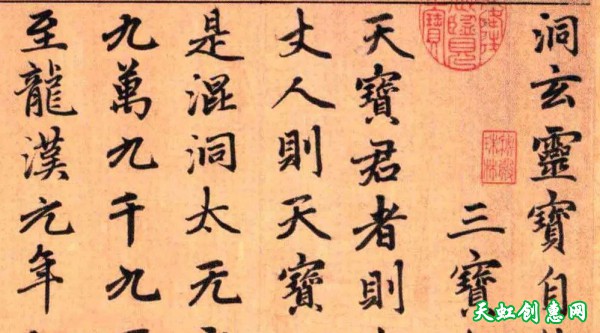 洞玄靈寶自
三寶
天寶君者則
丈人則天寶
是混洞太无
九萬九千九
至龍漢元年
天虹创惠网